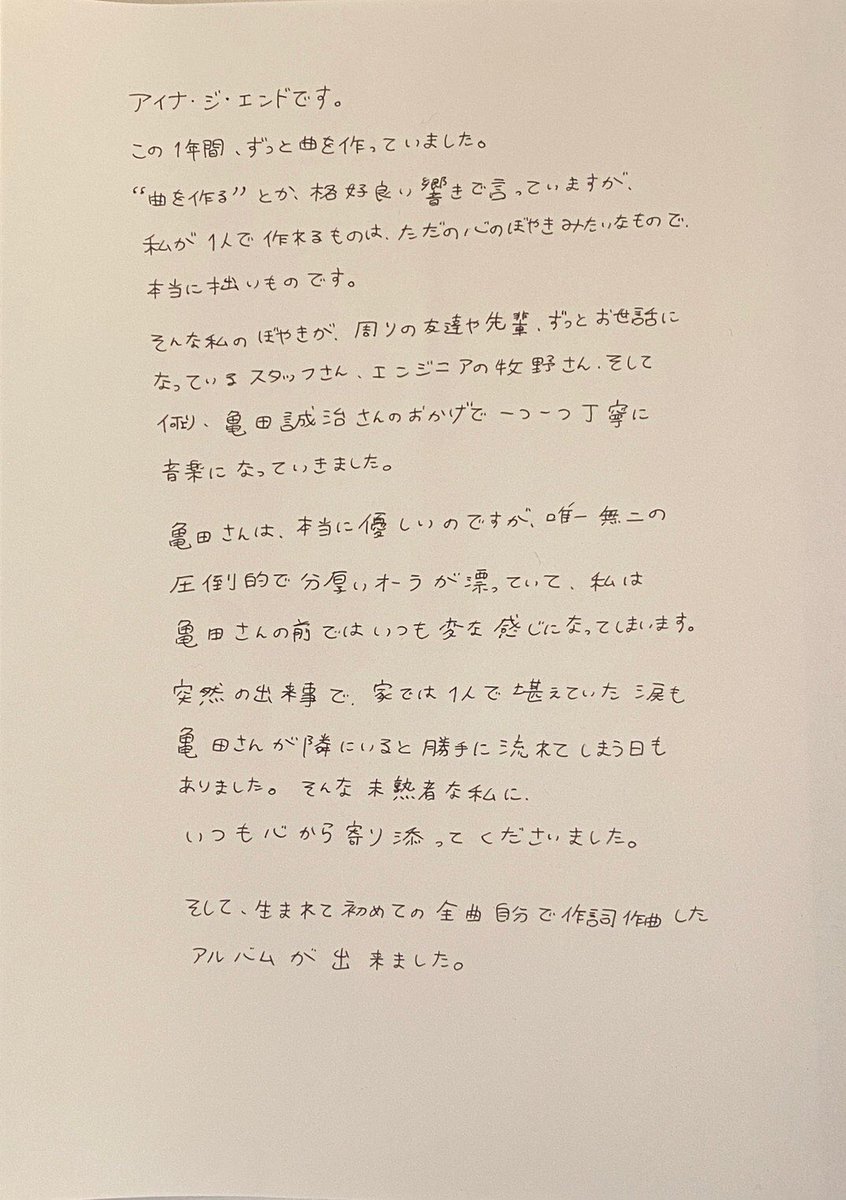 アイナ・ジ・エンドです。
この1年間、ずっと曲を作っていました。
“曲を作る”とか、格好良い響きで言っていますが、
私が1人で作れるものは、ただの心のぼやきみたいなもので、
本当に拙いものです。
そんな私のぼやきが、周りの友達や先輩、ずっとお世話に
なっているスタッフさん、エンジニアの牧野さん、そして
何より、亀田誠治さんのおかげで一つ一つ丁寧に
音楽になっていきました。
亀田さんは、本当に優しいのですが、唯一無二の
圧倒的で分厚いオーラが漂っていて、私は
亀田さんの前ではいつも変な感じになってしまいます。
突然の出来事で、家では1人で堪えていた涙も
亀田さんが隣にいると勝手に流れてしまう日も
ありました。そんな未熟者な私に、
いつも心から寄り添ってくださいました。
そして、生まれて初めての全曲自分で作詞作曲した
アルバムが出来ました。